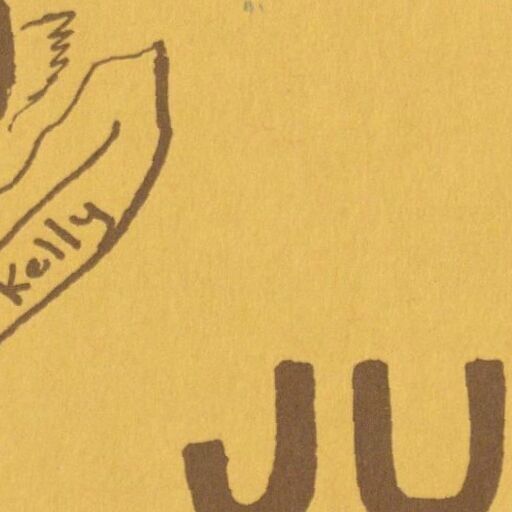 Kelly
JU